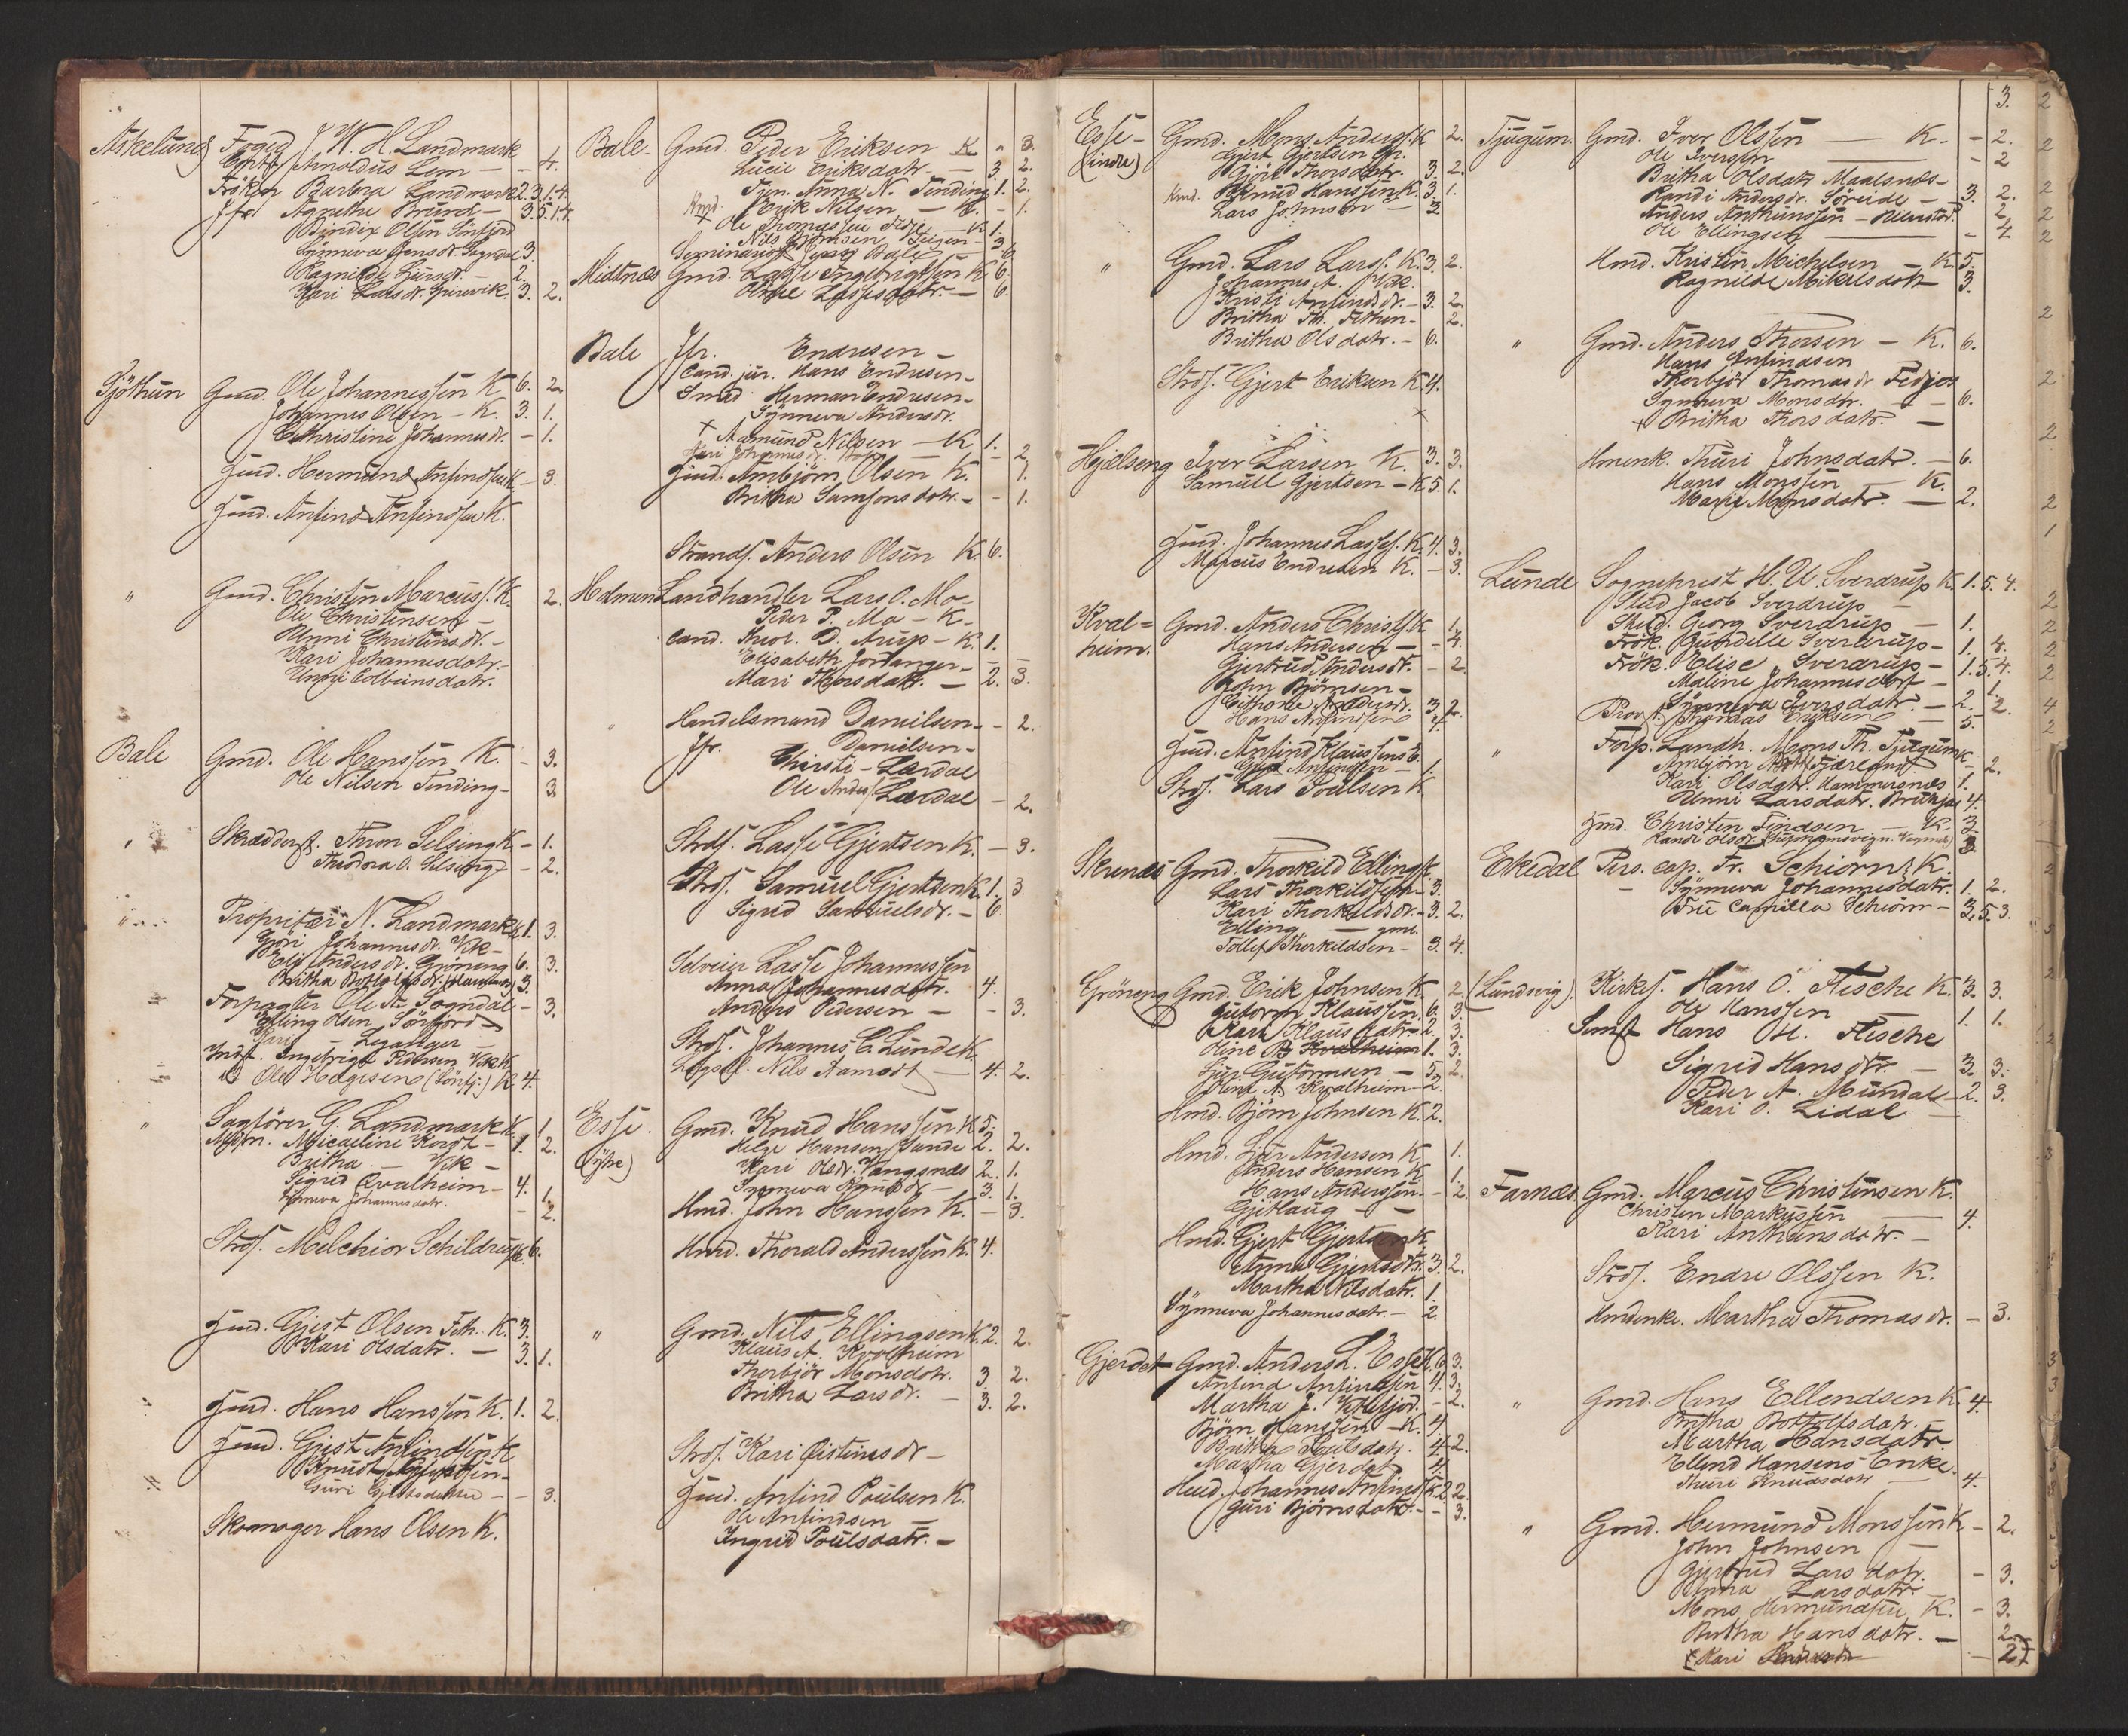 Askelund Foged J. W. H. Landmark
Contr. Arnoldus Lem — - 4.
Fröken Barbra Landmark 2.3.1.4.
Jfr. Agnethe Brund - 3.5.1.4.
Bendix Olsen Sinfjord
Synneva Jensdr. Sogndal 3.
Ragnilde Larsdr. — 2.
Kari Larsdr. 3. 2.
Sjöthun Gmd. Ole Johannessen K 6. 2.
Johannes Olsen - K. 3. 1.
Cathristine Johannesdr. - 1.
Hmd. Hermund Anfindsen K - 3.
Hmd. Anfind Anfindsen K.
" Gmd. Christen Marcuss. K. 2.
Ole Christensen -
Unni Christensdr. -
Kari Johannesdotr. -
Unni Colbeinsdatr.
Bale Gmd. Ole Hanssen K. - 3.
Ole Nilsen Tending - 3
" Skrædderst. Thron Selseng K - 1.
Theodora O. Selseng - 2.
" Proprietær N. Landmark K. 1. 3.
Gjöri Johannesdr. Vik -
Eli Andersdr. Gröneng 6. 3.
Britha Botolfsdr. 3.
Forpagter Ole A. Sogndal - 3.
Elling Olsen Sönfjord -
Kari - Leganger -
Indst. Ingebrigt Pedersen Vik K
id Ole Helgesen (Sönfj.) K. 4.
" Sagförer G. Landmark K 1
Mdm. Micaeline Kordt - 1. 2.
Britha — Vik -
Sigrid Qvalheim - 4. 1.
Synneva Johannesdatr. - 2.
Strds. Melchior Schildrup K 6.
Hmd. Gjert Olsen Feth. K. 3.
Kari Olsdatr. — 3. 1.
Hmd. Hans Hanssen K. 1. 2.
Hmd. Gjert Anfindsen K
Knud Gjertsen -
Guri Gjertsdatter - - 3.
Skomager Hans Olsen K.
Bale Gmd. Peder Eriksen K " 3.
Lucie Eriksdatr. — 3. 2.
Tjen. Anna N. Tending 1. 2.
Kmd. Erik Nilsen - K. - 1.
Ole Thomassen Fedje - K 1.
Nils Björnsen Teigen - 3
Seminarist Bale — 6
Midtnæs Gmd. Lasse Ingebrigtsen K. 6.
Oline Lassesdatr. - 6.
Bale Jfr. Endresen -
Cand. jur. Hans Endresen -
Smed Herman Endresen -
Synneva Andersdr.
+ Aamund Nilsen — K 1.
Kari Johannesdr. — - 2
Hmd. Ambjörn Olsen K. 1.
Britha Samsonsdotr. - - 1.
Strands. Anders Olsen K. 6.
Holmen Landhandler Lars O. Mo -
Peder P. Mo - K -
Cand. theol. D. Arup - K. 1.
Elisabeth Jostanger -
Mari Thorsdatr. — 2. 3.
" Handelsmand Danielsen - - 2.
Jfr. Danielsen -
Kirsti - Lærdal
Ole Anders. Lærdal - 2.
Strds. Lasse Gjertsen K. - 3.
Strds. Samuel Gjertsen K. 1. 3.
Sigrid Samuelsdr. - 6
Selveier Lasse Johannessen
Anna Johannesdotr. 4.
Anders Pedersen — - 3.
Strds. Johannes C. Lunde K.
Logsk. Nils Aamodt — 4. 2.
Esse. Gmd. Knud Hanssen K 5.
(ytre) Helge Hansen Sande 2. 2.
Kari Olsdr. Vangsnæs 2. 1.
Synneva Knudsdr. — 3. 1.
Hmd. John Hanssen K. - 3.
Hmd. Thorald Anderssen K. 4.
" Gmd. Nils Ellingsen K. 2. 2.
Klaus A. Kvalheim
Thorbjör Monsdotr. 3. 2.
Britha Larsdr. - 3. 2.
Strds. Kari Östensdr -
Hmd. Anfind Poulsen K.
Ole Anfindsen -
Ingrid Poulsdatr. -
Esse - Gmd. Mons Anders. K 2.
(indre) Gjert Gjertsen
Gjöri Thorsdatr. 3. 2.
Kmd. Knud Hanssen K. 3. 1.
Lars Johnson — 3
" Gmd. Lars Lars. K. 3. 2.
Johannes A. Vik.
Kristi Anfindsdr. - 3. 2
Britha Th. Fethen - 2.
Britha Olsdatr. - 6.
Strds. Gjert Eriksen K. 4.
Hjelseng Iver Larsen K. 3. 3.
Samuel Gjertsen - K 5. 1.
Hmd. Johannes Lasses. K. 4. 3.
Marcus Endresen K. - 3.
Kval= Gmd. Anders Christs. K 1.
heim. Hans Andersen — - 4.
Gjertrud Andersdr. - 2
John Björnsen -
Cithrine Andersdr. 3 2.
Hans Anfindsen 4.
Hmd. Anfind Klaussens E.
Anfindsen - 1.
Strds. Lars Poulsen K.
Skrenæs Gmd. Thorkild Ellings.
Lars Thorkildsen - 3.
Kari Thorkildsdr. - 3. 2.
Elling — gml.
Tollef Thorkildsen - 3. 4.
Gröneng Gmd. Erik Johnsen K. 2.
Guttorm Klaussen. 6. 3.
Kari Klausdatr. - 2. 3.
Oline B. Kvalheim 1. 3.
Lars Guttormsen - 5. 2.
Oline A. Kvalheim - 2.
Hmd. Björn Johnsen K. 2.
Hmd. Lars Andersen K 1.
Anders Hansen K. 1.
Hans Anderssen. - 2.
Gjetlaug - -
Hmd. Gjert Gjertsen K
Anna Gjertsdtr. 3. 2.
Martha Nilsdatr. 1.
Synneva Johannesdatr. - 2.
Gjerdet Gmd. Anders L. Esse K. 6. 3.
Anfind Anfindsen 4. 3.
Martha J. Vetlefjord. - 2.
Björn Hanssen - K. 4.
Britha Poulsdatr. 4. 2.
Martha Gjerdet 4.
Hmd. Johannes Anfinds. K 2. 2.
Guri Björnsdatr. - - 3.
3.
Tjugum. Gmd. Iver Olsen — K. - 2.
Ole Iversen — - 2
Britha Olsdatr. Maalsnæs -
Randi Andersdr. Söreide — 3. 2.
Anders Anthunssen - 2
Ole Ellingsen — - 4
Hmd. Kristen Michelsen — K. 5.
Ragnilde Mikkelsdatr. 3.
" Gmd. Anders Thorsen - K. 6.
Hans Anfindsen
Thorbjör Thomasdr. Fedjes
Synneva Monsdtr. — 6.
+ Britha Thorsdatr. —
Hmenk. Thuri Johnsdatr. - 6.
Hans Monssen K.
Marie Monsdatr. — 2.
Lunde Sogneprest H. U. Sverdrup K. 1. 5. 4.
Stud. Jacob Sverdrup -
Stud. Georg Sverdrup - 1.
Frök. Gunnelle Sverdrup - 1. 4.
Frök. Elise Sverdrup - 1. 5. 4.
Maline Johannesdatr. - 1.
Synneva Iversdatr. - 2. 2.
Thomas Eriksen — 5.
" Forp. Landh. Mons Th. Tjugum K
Ambjörn Fjærland 2.
Kari Olsdatr. Hammersnæs 1.
Unni Larsdatr. 4.
Hmd. Christen Findsen — K. 3.
Randi Olsdr. 3.
Ekedal Pers. cap. Fr. Schiörn K.
Synneva Johannesdatr. 1. 2.
Frue Camilla Schiörn - 3. 5. 3.
(Lundsvig). Kirkes. Hans O. Flesche K. 3. 3.
Ole Hanssen — 1. 1.
Hans H. Flesche
Sigrid Hansdtr. — 3. 3.
Peder A. Mundal - 2. 3.
Kari O. Lidal —
Farnæs. Gmd. Marcus Christensen K.
Christen Markussen — 4.
Kari Anthunsdatr. -
Strds. Endre Olssen K.
Hmdenke. Martha Thomasdr. - 3.
" Gmd. Hans Ellendsen K. 4.
Britha Botolfsdatr. -
Martha Hansdatr. -
Ellend Hansens Enke.
Thuri Knudsdatr — 4.
" Gmd. Hermund Monssen K - 2.
John Johnsen —
Gjertrud Larsdotr. - 3.
Anna Larsdatr. -
Mons Hermundsen K. - 3.
Britha Hansdotr. — 2.
Kari 2